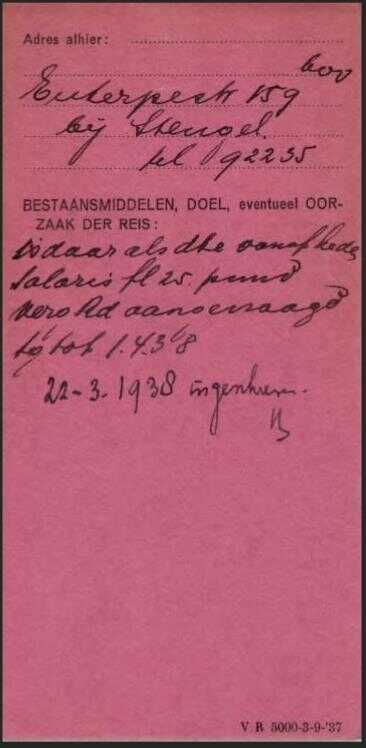 Adres alhier:
bov
Euterpestr 159
bij Stengel.
tel 92235
BESTAANSMIDDELEN, DOEL, eventueel OOR-
ZAAK DER REIS:
is daar als dbe vanaf heden
salaris fl 25. pmnd
verord aangevraagd
tijd tot 1.4.38
22-3.1938 ingeschreven.
V R 5000-3-9-'37